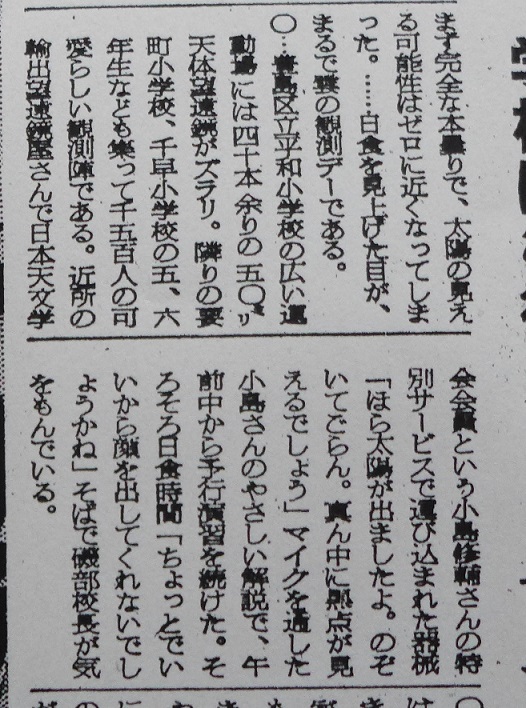 ます完全な本曇りで、太陽の見え
る可能性はゼロに近くなってしま
った。……日食を見上げた目が、
まるで雲の観測デーである。
〇…豊島区立平和小学校の広い運
動場には四十本余りの五〇㍉
天体望遠鏡がズラリ。隣りの要
町小学校、千早小学校の五、六
年生なども集って千五百人の可
愛らしい観測陣である。近所の
輸出望遠鏡屋さんで日本天文学
会会員という小島修輔さんの特
別サービスで運び込まれた器械
「ほら太陽が出ましたよ。のぞ
いてごらん。真ん中に黒点が見
えるでしょう」マイクを通した
小島さんのやさしい解説で、午
前中から予行演習を続けた。そ
ろそろ日食時間「ちょっとでい
いから顔を出してくれないでし
ょうかね」そばで磯部校長が気
をもんでいる。